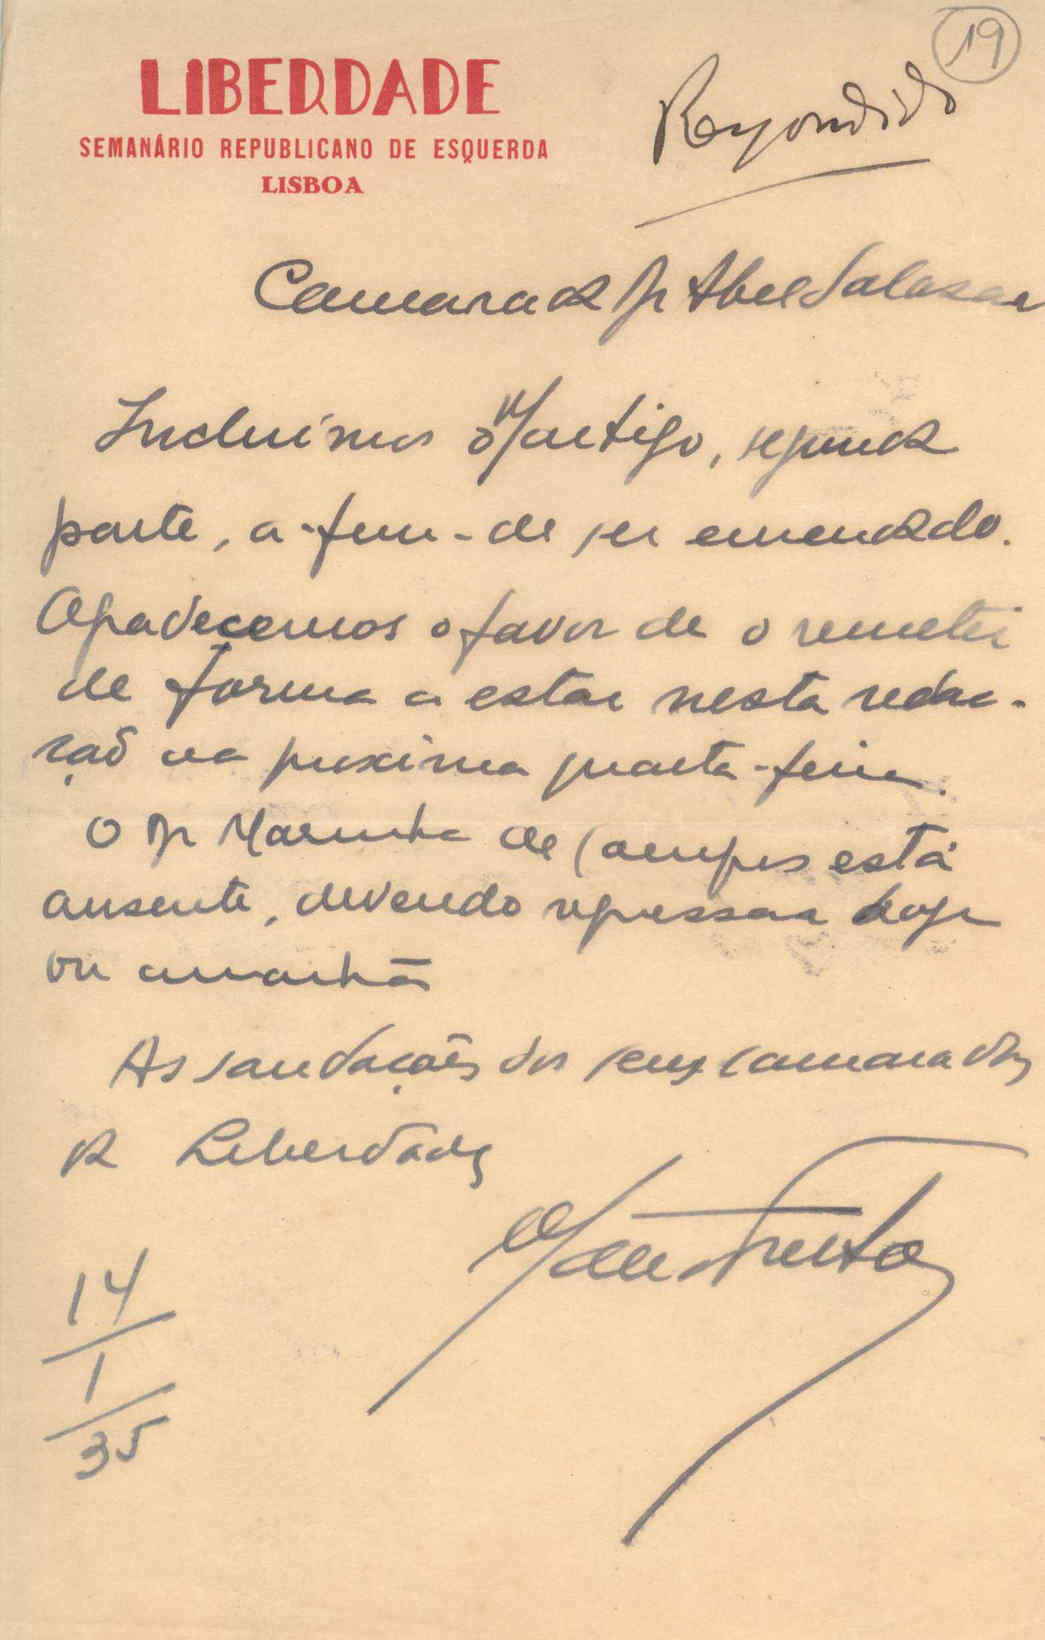 19
LIBERDADE
SEMANÁRIO REPUBLICANO DE ESQUERDA
LISBOA
Respondido
Camarada Dr Abel Salazar
Incluímos o V/ artigo, segunda
parte, a-fim-de ser emendado.
Agradecemos o favor de o remeter
de forma a estar nesta redac-
ção na proxima quarta-feira.
O Dr Marinha de Campos está
ausente, devendo regressar hoje
ou amanhã
As saudações dos seus camaradas
da Liberdade
14
1
35